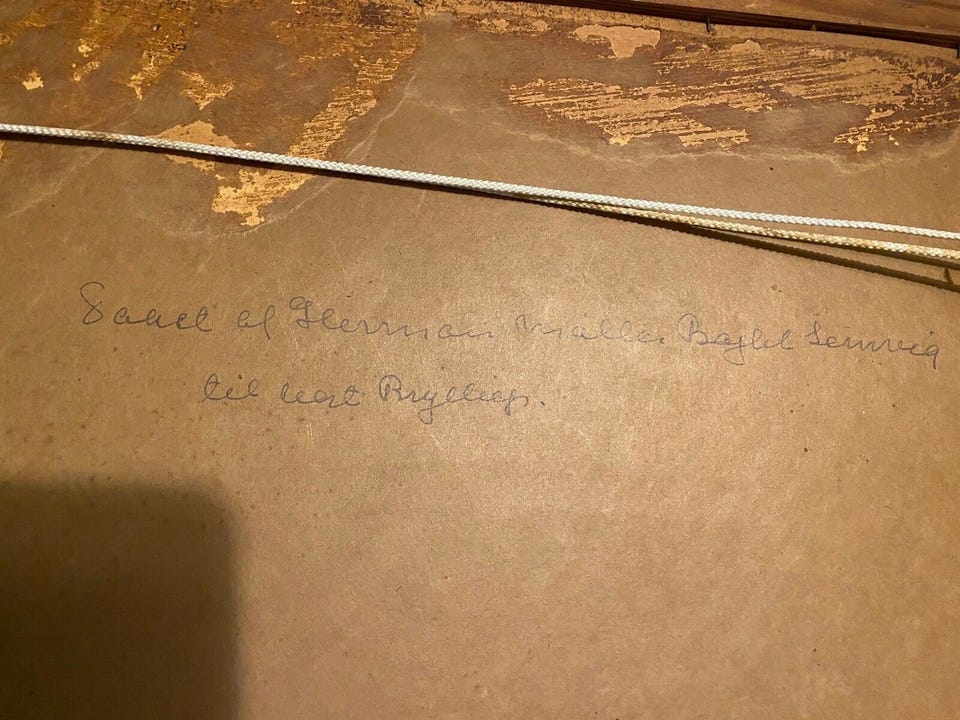 Faaet af Herman Møller Boghl Lemvig
til vort Bryllup.